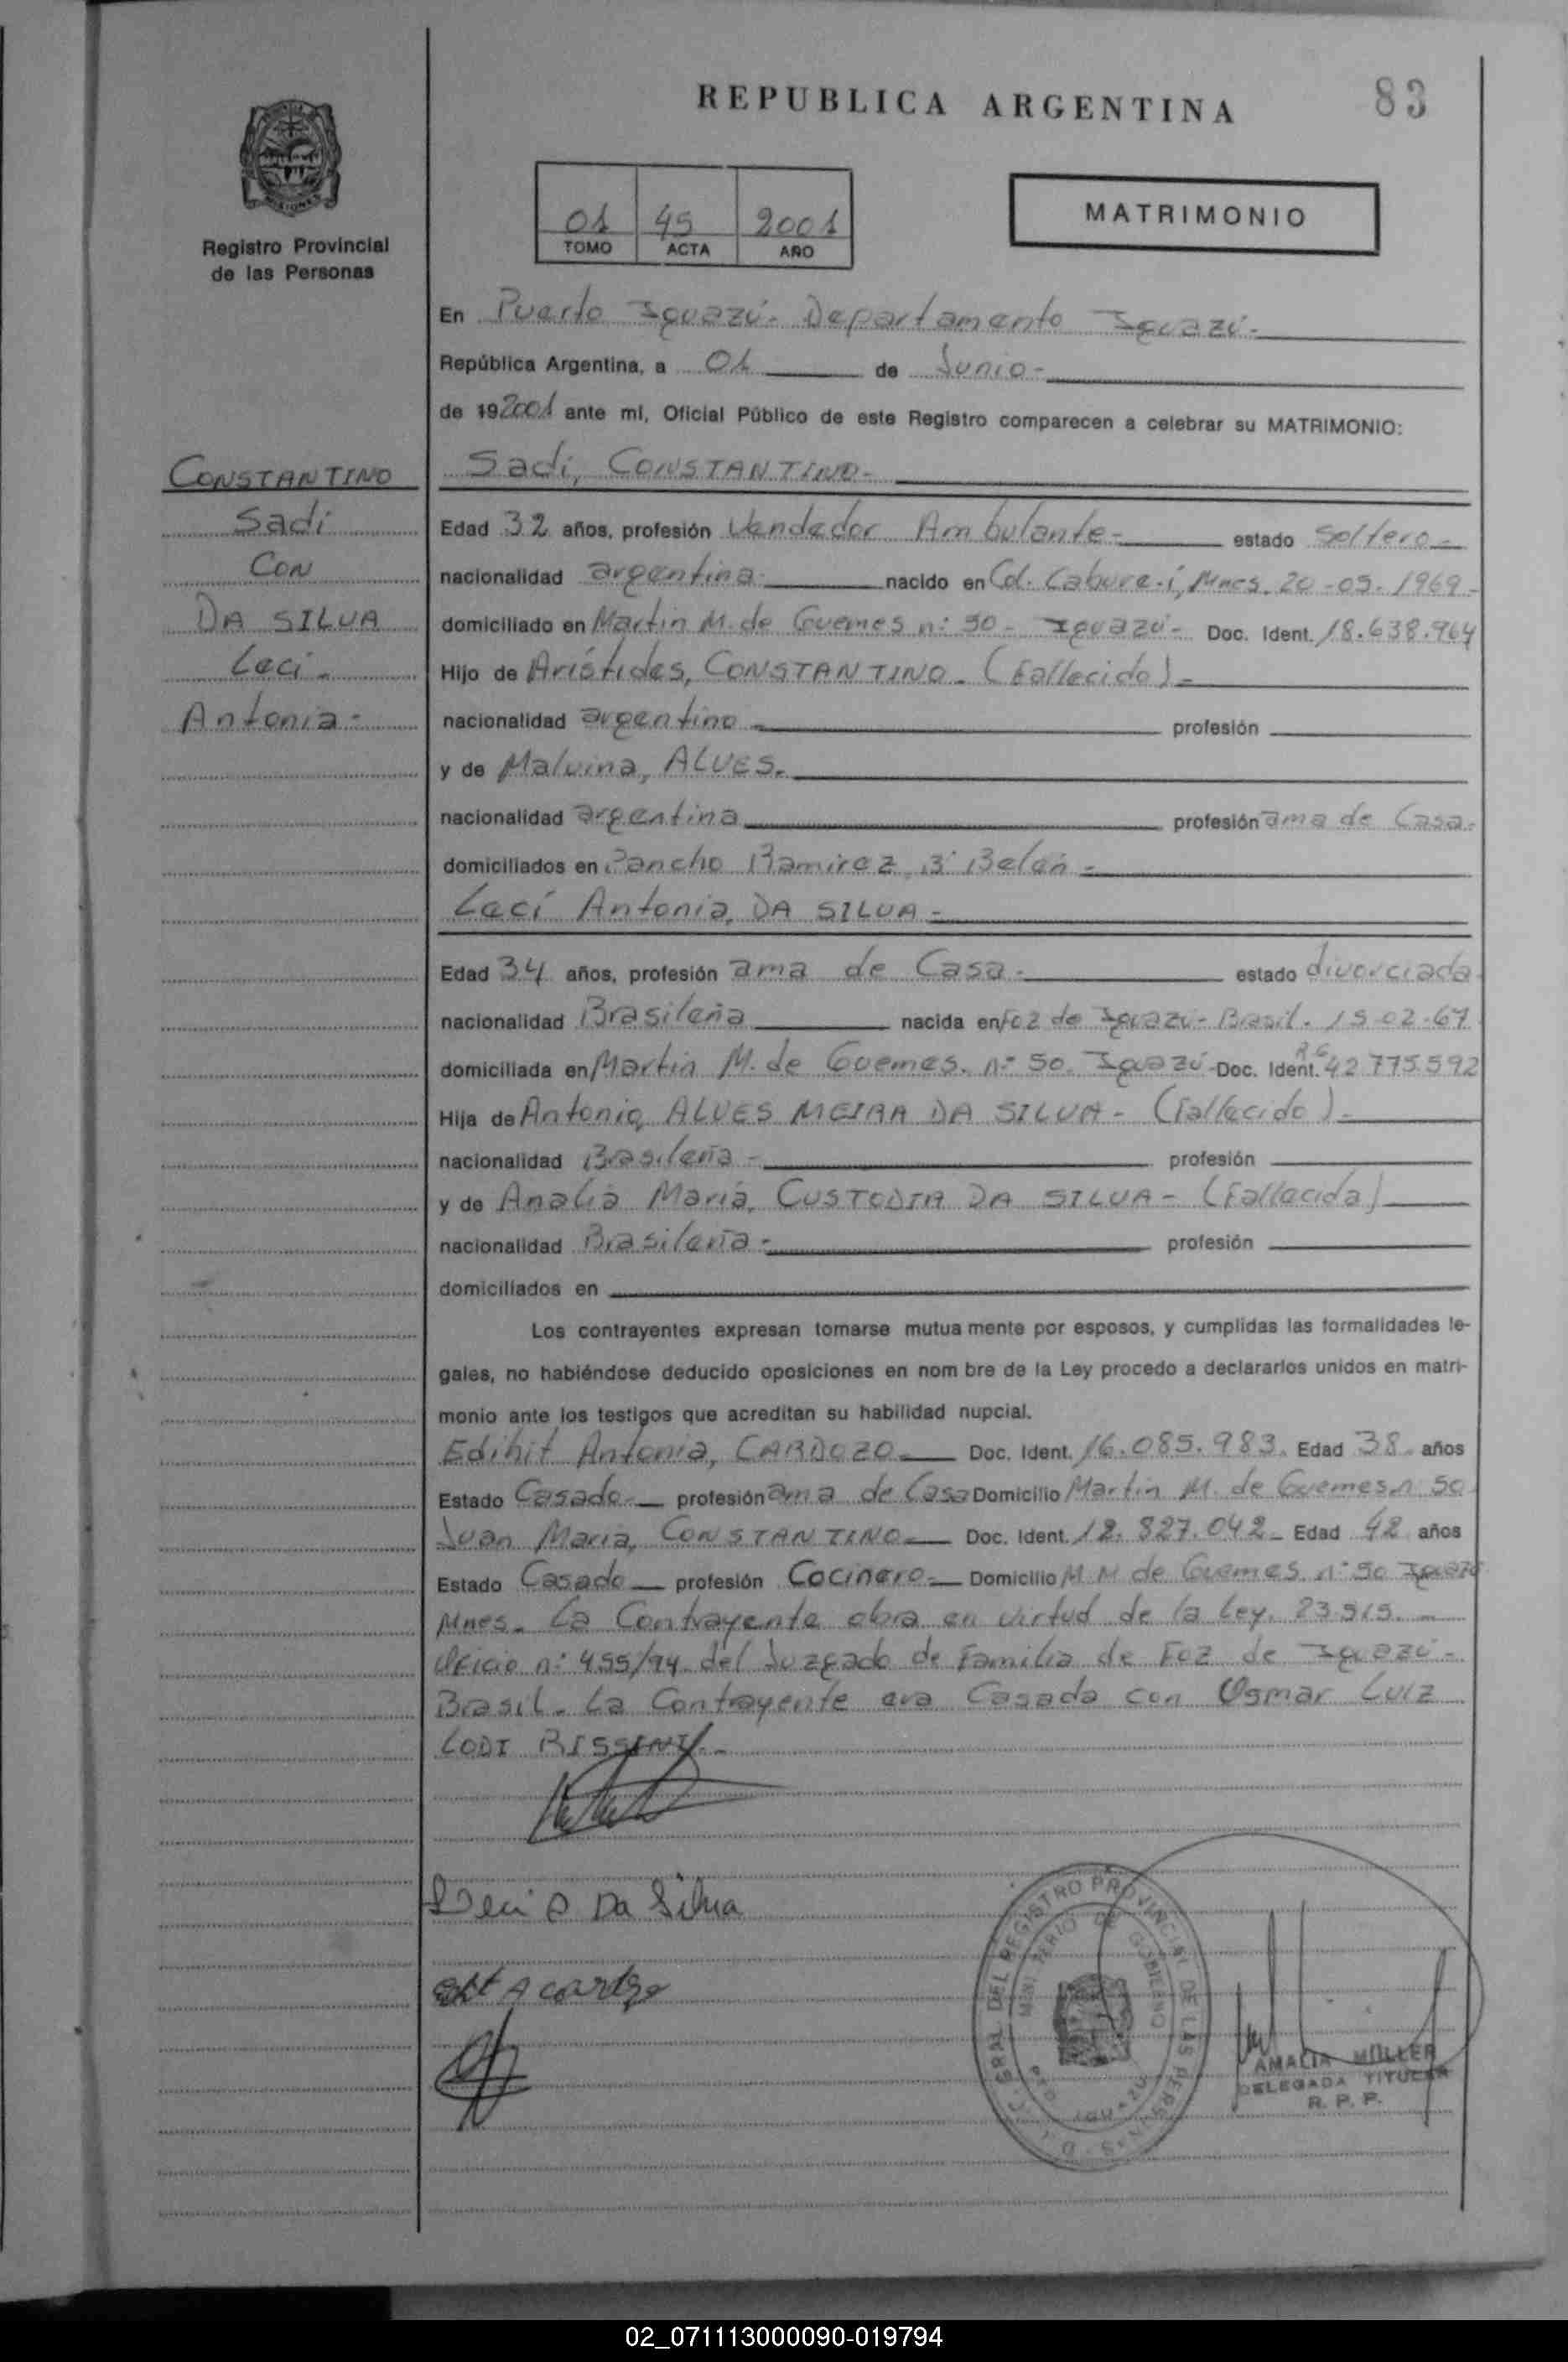 REPUBLICA ARGENTINA
83
MISIONES
Registro Provincial
de las Personas
01 45 2001
TOMO ACTA AÑO
MATRIMONIO
En Puerto Iguazú- Departamento Iguazú-
República Argentina, a 01 de Junio-
de 192001 ante mi, Oficial Público de este Registro comparecen a celebrar su MATRIMONIO:
CONSTANTINO
Sadi
CON
DA SILVA
Leci
Antonia-
Sadi, CONSTANTINO-
Edad 32 años, profesión Vendedor Ambulante- estado Soltero-
nacionalidad argentina- nacido en Col. Cabure-í, Mnes. 20-05-1969-
domiciliado en Martin M. de Guemes n: 50- Iguazú- Doc. Ident. 18.638.964
Hijo de Arístides, CONSTANTINO- (Fallecido)-
nacionalidad argentino- profesión
y de Malvina, ALVES-
nacionalidad argentina profesión ama de Casa-
domiciliados en Pancho Ramirez B° Belén-
Lecí Antonia, DA SILVA-
Edad 34 años, profesión ama de Casa- estado divorciada-
nacionalidad Brasileña nacida en Foz de Iguazú- Brasil. 15-02-67
domiciliada en Martin M. de Guemes. n: 50. Iguazú- Doc. Ident. RG 42775592
Hija de Antonio, ALVES MEIRA DA SILVA- (Fallecido)-
nacionalidad Brasileña- profesión
y de Analia Maria, CUSTODIA DA SILVA- (Fallecida)
nacionalidad Brasileña- profesión
domiciliados en
Los contrayentes expresan tomarse mutua mente por esposos, y cumplidas las formalidades le-
gales, no habiéndose deducido oposiciones en nom bre de la Ley procedo a declararlos unidos en matri-
monio ante los testigos que acreditan su habilidad nupcial.
Edihit Antonia, CARDOZO- Doc. Ident. 16.085.983. Edad 38 años
Estado Casado- profesión ama de Casa Domicilio Martin M. de Guemes n 50
Juan Maria, CONSTANTINO- Doc. Ident. 12.827.042- Edad 42 años
Estado Casado- profesión Cocinero- Domicilio M M de Guemes. n: 50 Iguazú
Mnes- La Contrayente obra en virtud de la Ley. 23.515.-
Oficio n: 455/94 del Juzgado de Familia de Foz de Iguazú-
Brasil- La Contrayente era Casada con Osmar Luiz
LODI RISSINI-
Leci A Da Silva
Edit A Cardozo
GRAL DEL REGISTRO PROVINCIAL DE LAS PERSONAS
MINISTERIO DE GOBIERNO
IGUAZU
AMALIA MÜLLER
DELEGADA TITULAR
R. P. P.
02_071113000090-019794